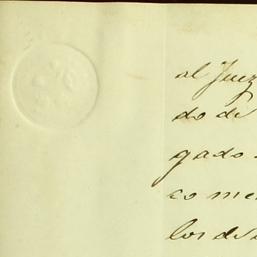 al Juez
do de
gado
co me
los de